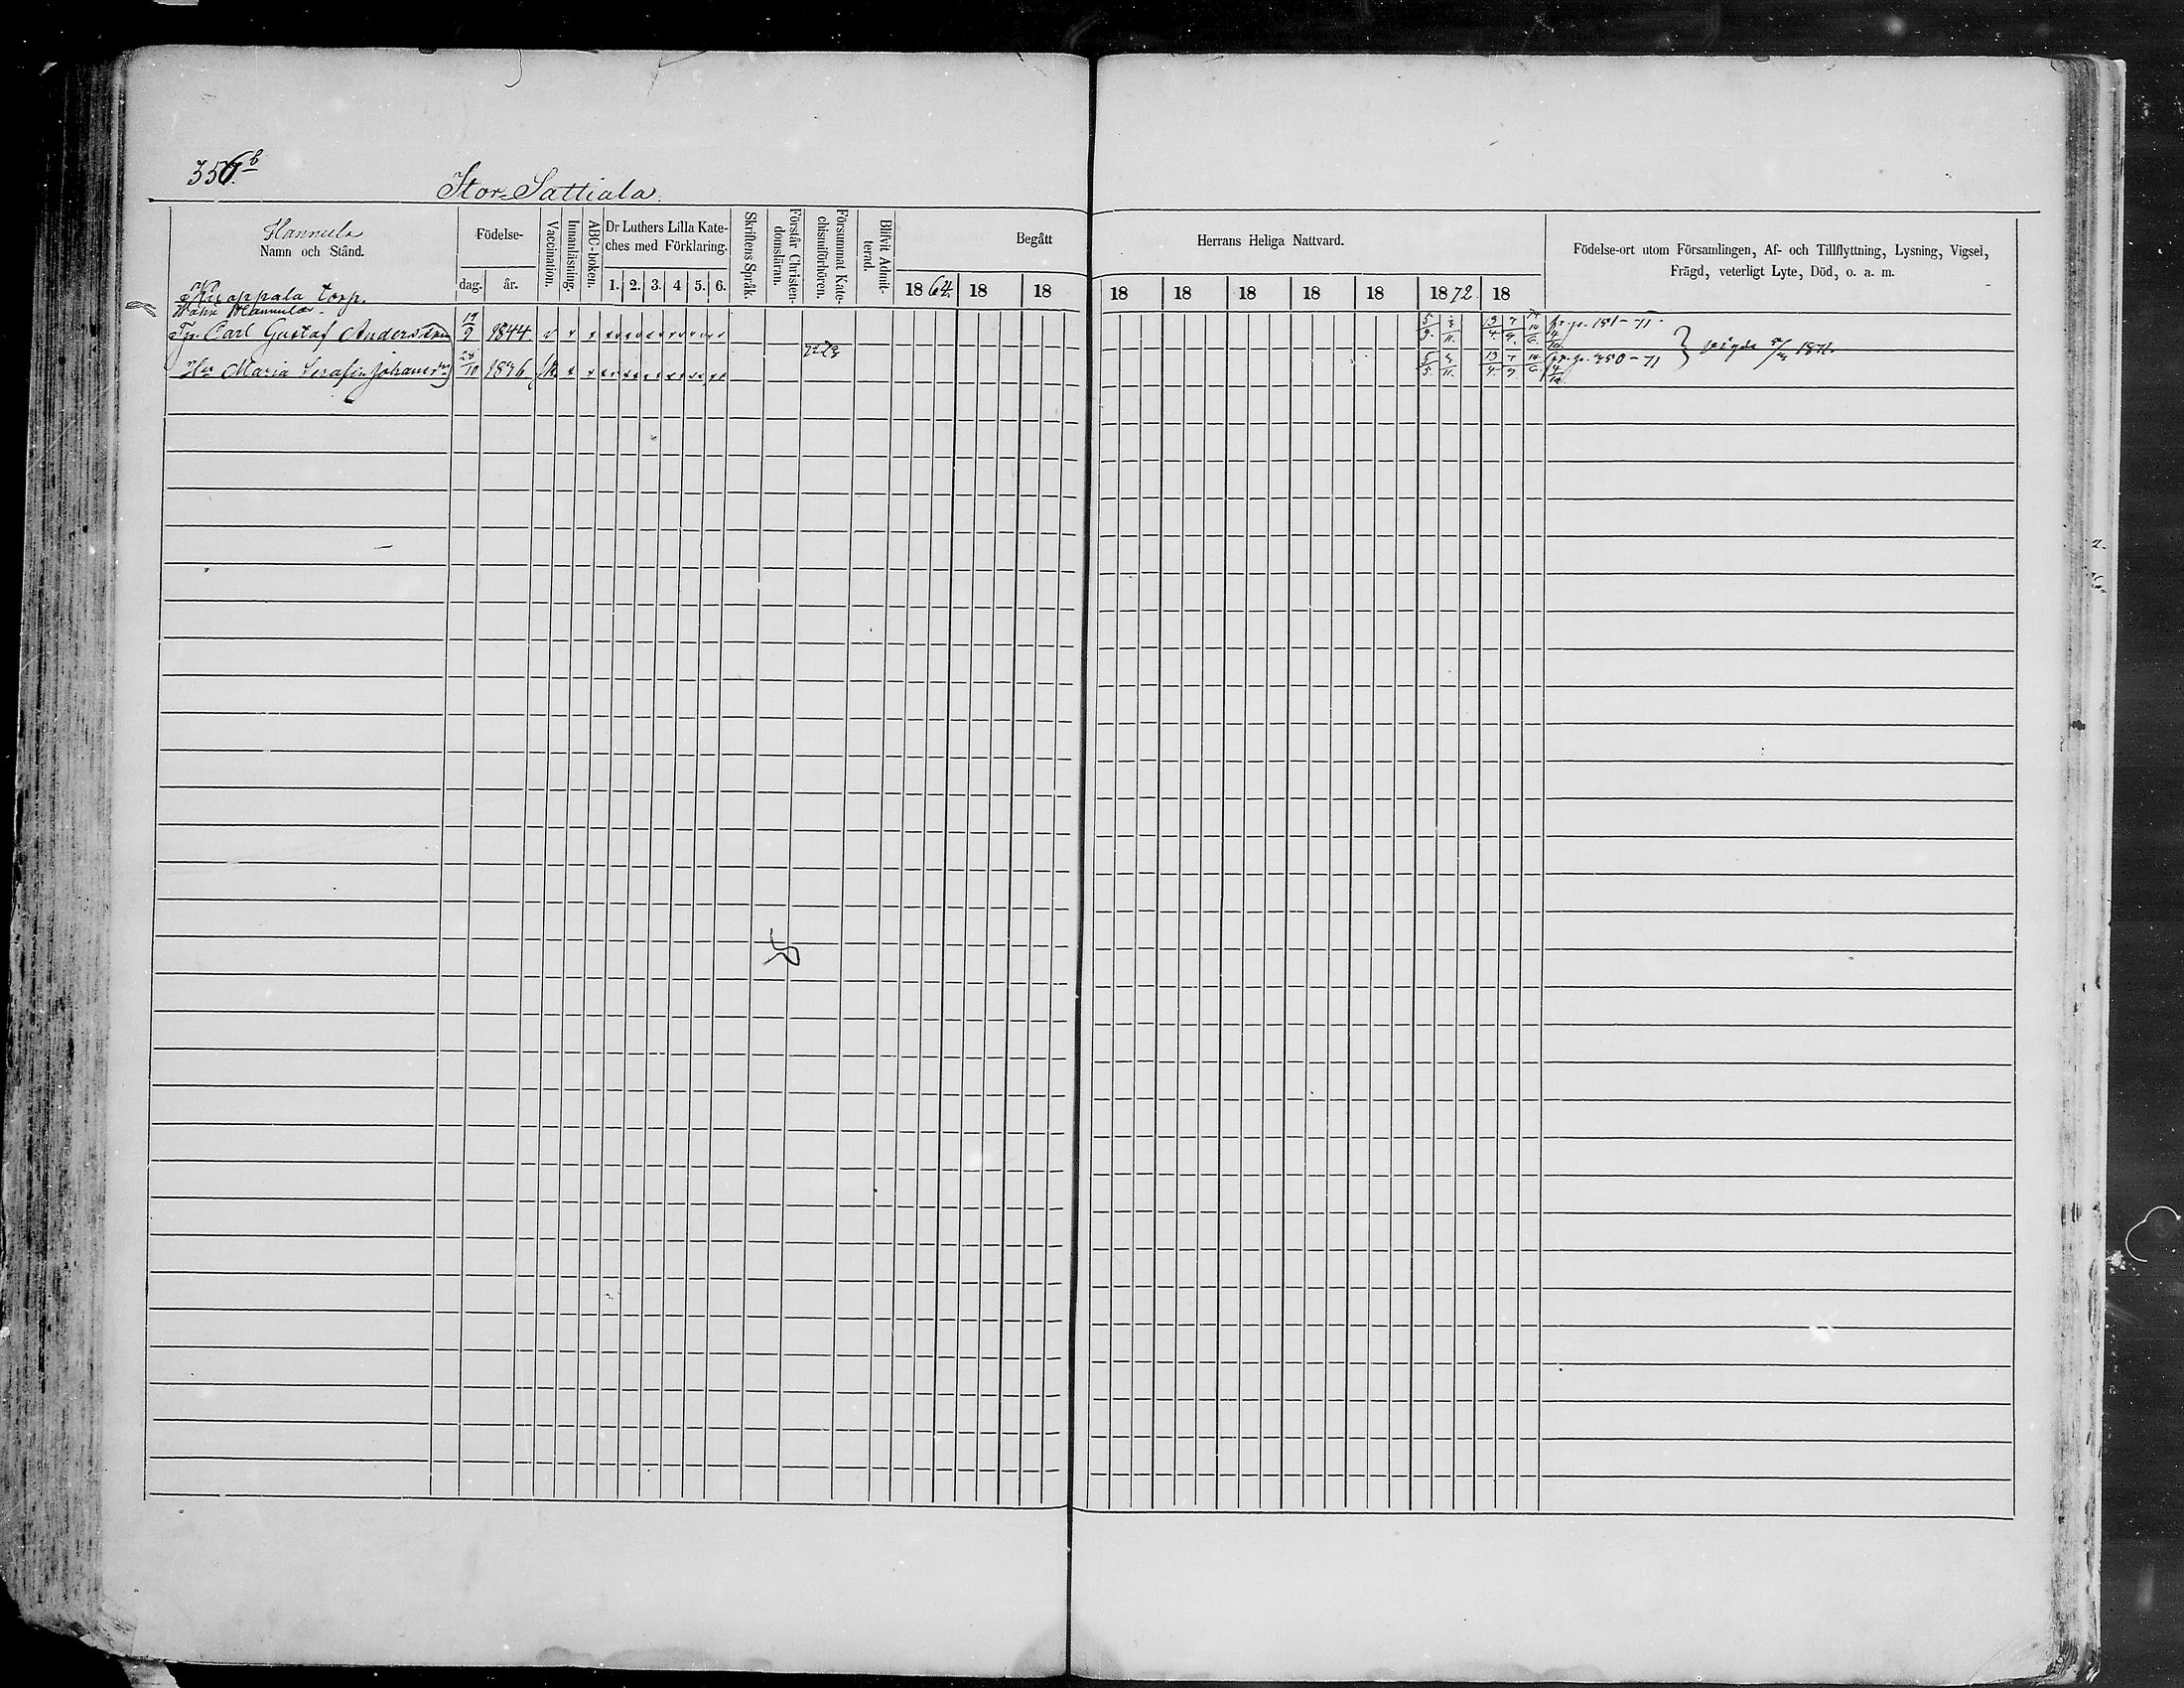 356.b
Stor-Sattiala.
Hannula
Namn och Stånd.
Födelse-
dag.
år.
Vaccination.
Innanläsning.
ABC-boken.
Dr Luthers Lilla Kate-
ches med Förklaring.
1. 2. 3. 4 5. 6.
Skriftens Språk.
Förstår Christen-
domsläran.
Försummat Kate-
chismiförhören.
Blifvit Admit-
terad.
Begått
Herrans Heliga Nattvard.
1864. 18 18
18 18 18 18 18 1872 18
Födelse-ort utom Församlingen, Af- och Tillflyttning, Lysning, Vigsel,
Frägd, veterligt Lyte, Död, o. a. m.
Knappala torp.
Hannula.
Tp. Carl Gustaf Andersson 12/9 1844. fr. p. 151-71.
Hu Maria Serafia Johansd 28/10 1846 fr. p. 350-71 } vigde 1871.